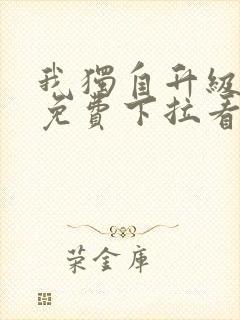 我獨自升級
免費下拉看
荣金庫